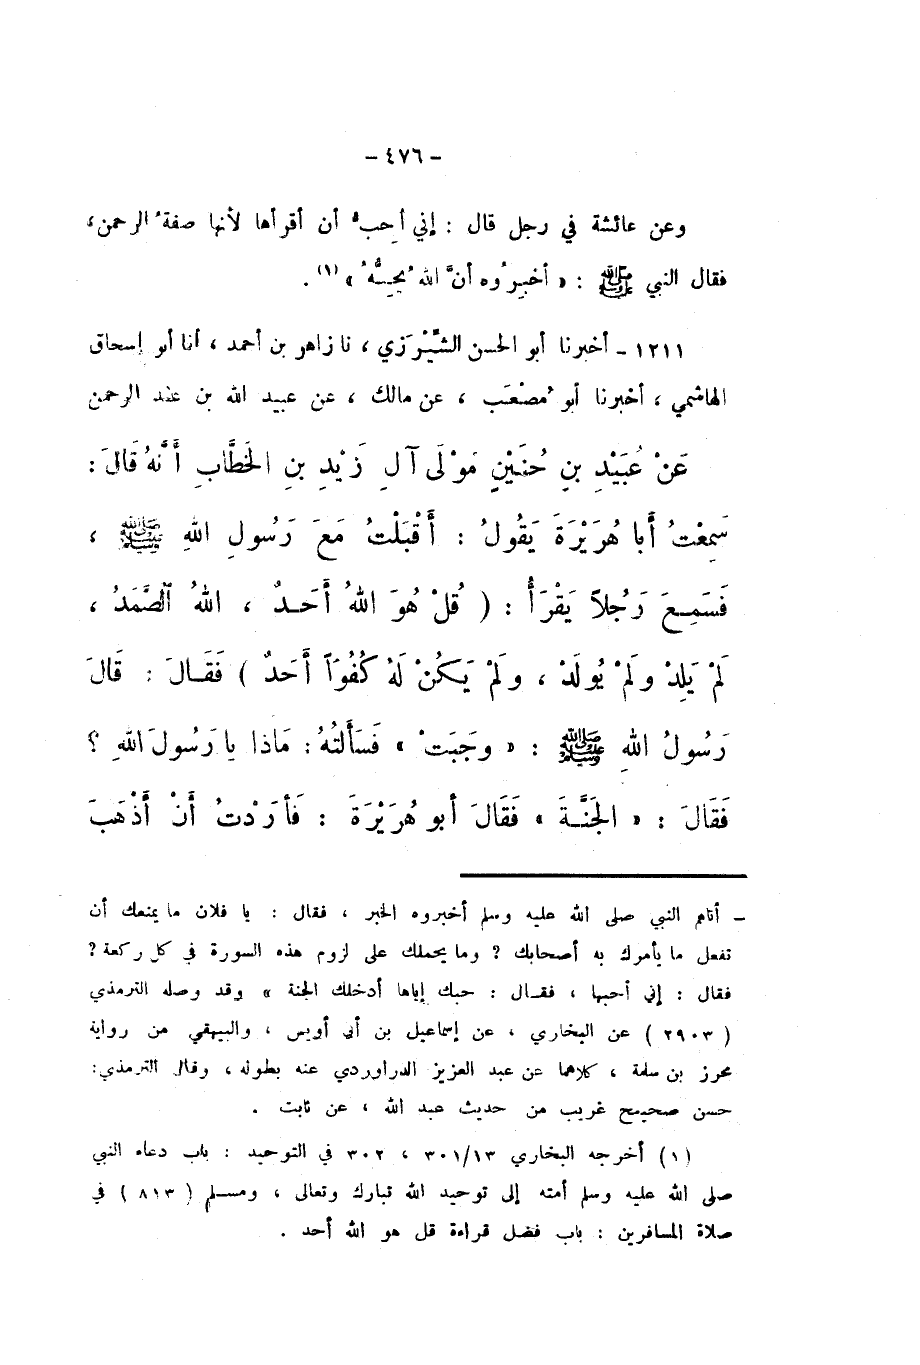 - ٤٧٦ -
وعن عائشة في رجل قال : إني أحِبُّ أن أقرأها لأنها صفةُ الرحمن،
فقال النبي ﷺ : « أخبِرُوه أنَّ اللهَ يُحِبُّهُ » (١) .
١٢١١ ـ أخبرنا أبو الحسن الشِّيْرَزي ، نا زاهر بن أحمد ، أنا أبو إسحاق
الهاشمي ، أخبرنا أبو مُصْعَب ، عن مالك ، عن عبيد الله بن عبد الرحمن
عَنْ عُبَيْدِ بنِ حُنَيْنٍ مَوْلَى آلِ زَيْدِ بنِ الخَطَّابِ أَنَّهُ قَالَ :
سَمِعْتُ أَبا هُرَيْرَةَ يَقُولُ : أَقْبَلْتُ مَعَ رَسُولِ اللهِ ﷺ ،
فَسَمِعَ رَجُلاً يَقْرَأُ : ( قُلْ هُوَ اللهُ أَحَدٌ ، اللهُ الصَّمَدُ ،
لَمْ يَلِدْ ولَمْ يُولَدْ ، ولَمْ يَكُنْ لَهُ كُفُوَاً أَحَدٌ ) فَقَالَ : قَالَ
رَسُولُ اللهِ ﷺ : « وجَبَتْ » فَسَأَلْتُهُ : مَاذا يا رَسُولَ اللهِ ؟
فَقَالَ : « الجَنَّةَ » فَقَالَ أبو هُرَيْرَةَ : فَأرَدْتُ أَنْ أَذْهَبَ
ـ أتاهم النبي صلى الله عليه وسلم أخبروه الخبر ، فقال : يا فلان ما يمنعك أن
تفعل ما يأمرك به أصحابك ؟ وما يحملك على لزوم هذه السورة في كل ركعة ؟
فقال : إني أحبها ، فقال : حبك إياها أدخلك الجنة » وقد وصله الترمذي
( ٢٩٠٣ ) عن البخاري ، عن إسماعيل بن أبي أويس ، والبيهقي من رواية
محرز بن سلمة ، كلاهما عن عبد العزيز الدراوردي عنه بطوله ، وقال الترمذي:
حسن صحيح غريب من حديث عبد الله ، عن ثابت .
(١) أخرجه البخاري ٣٠١/١٣ ، ٣٠٢ في التوحيد : باب دعاء النبي
صلى الله عليه وسلم أمته إلى توحيد الله تبارك وتعالى ، ومسلم ( ٨١٣ ) في
صلاة المسافرين : باب فضل قراءة قل هو الله أحد .